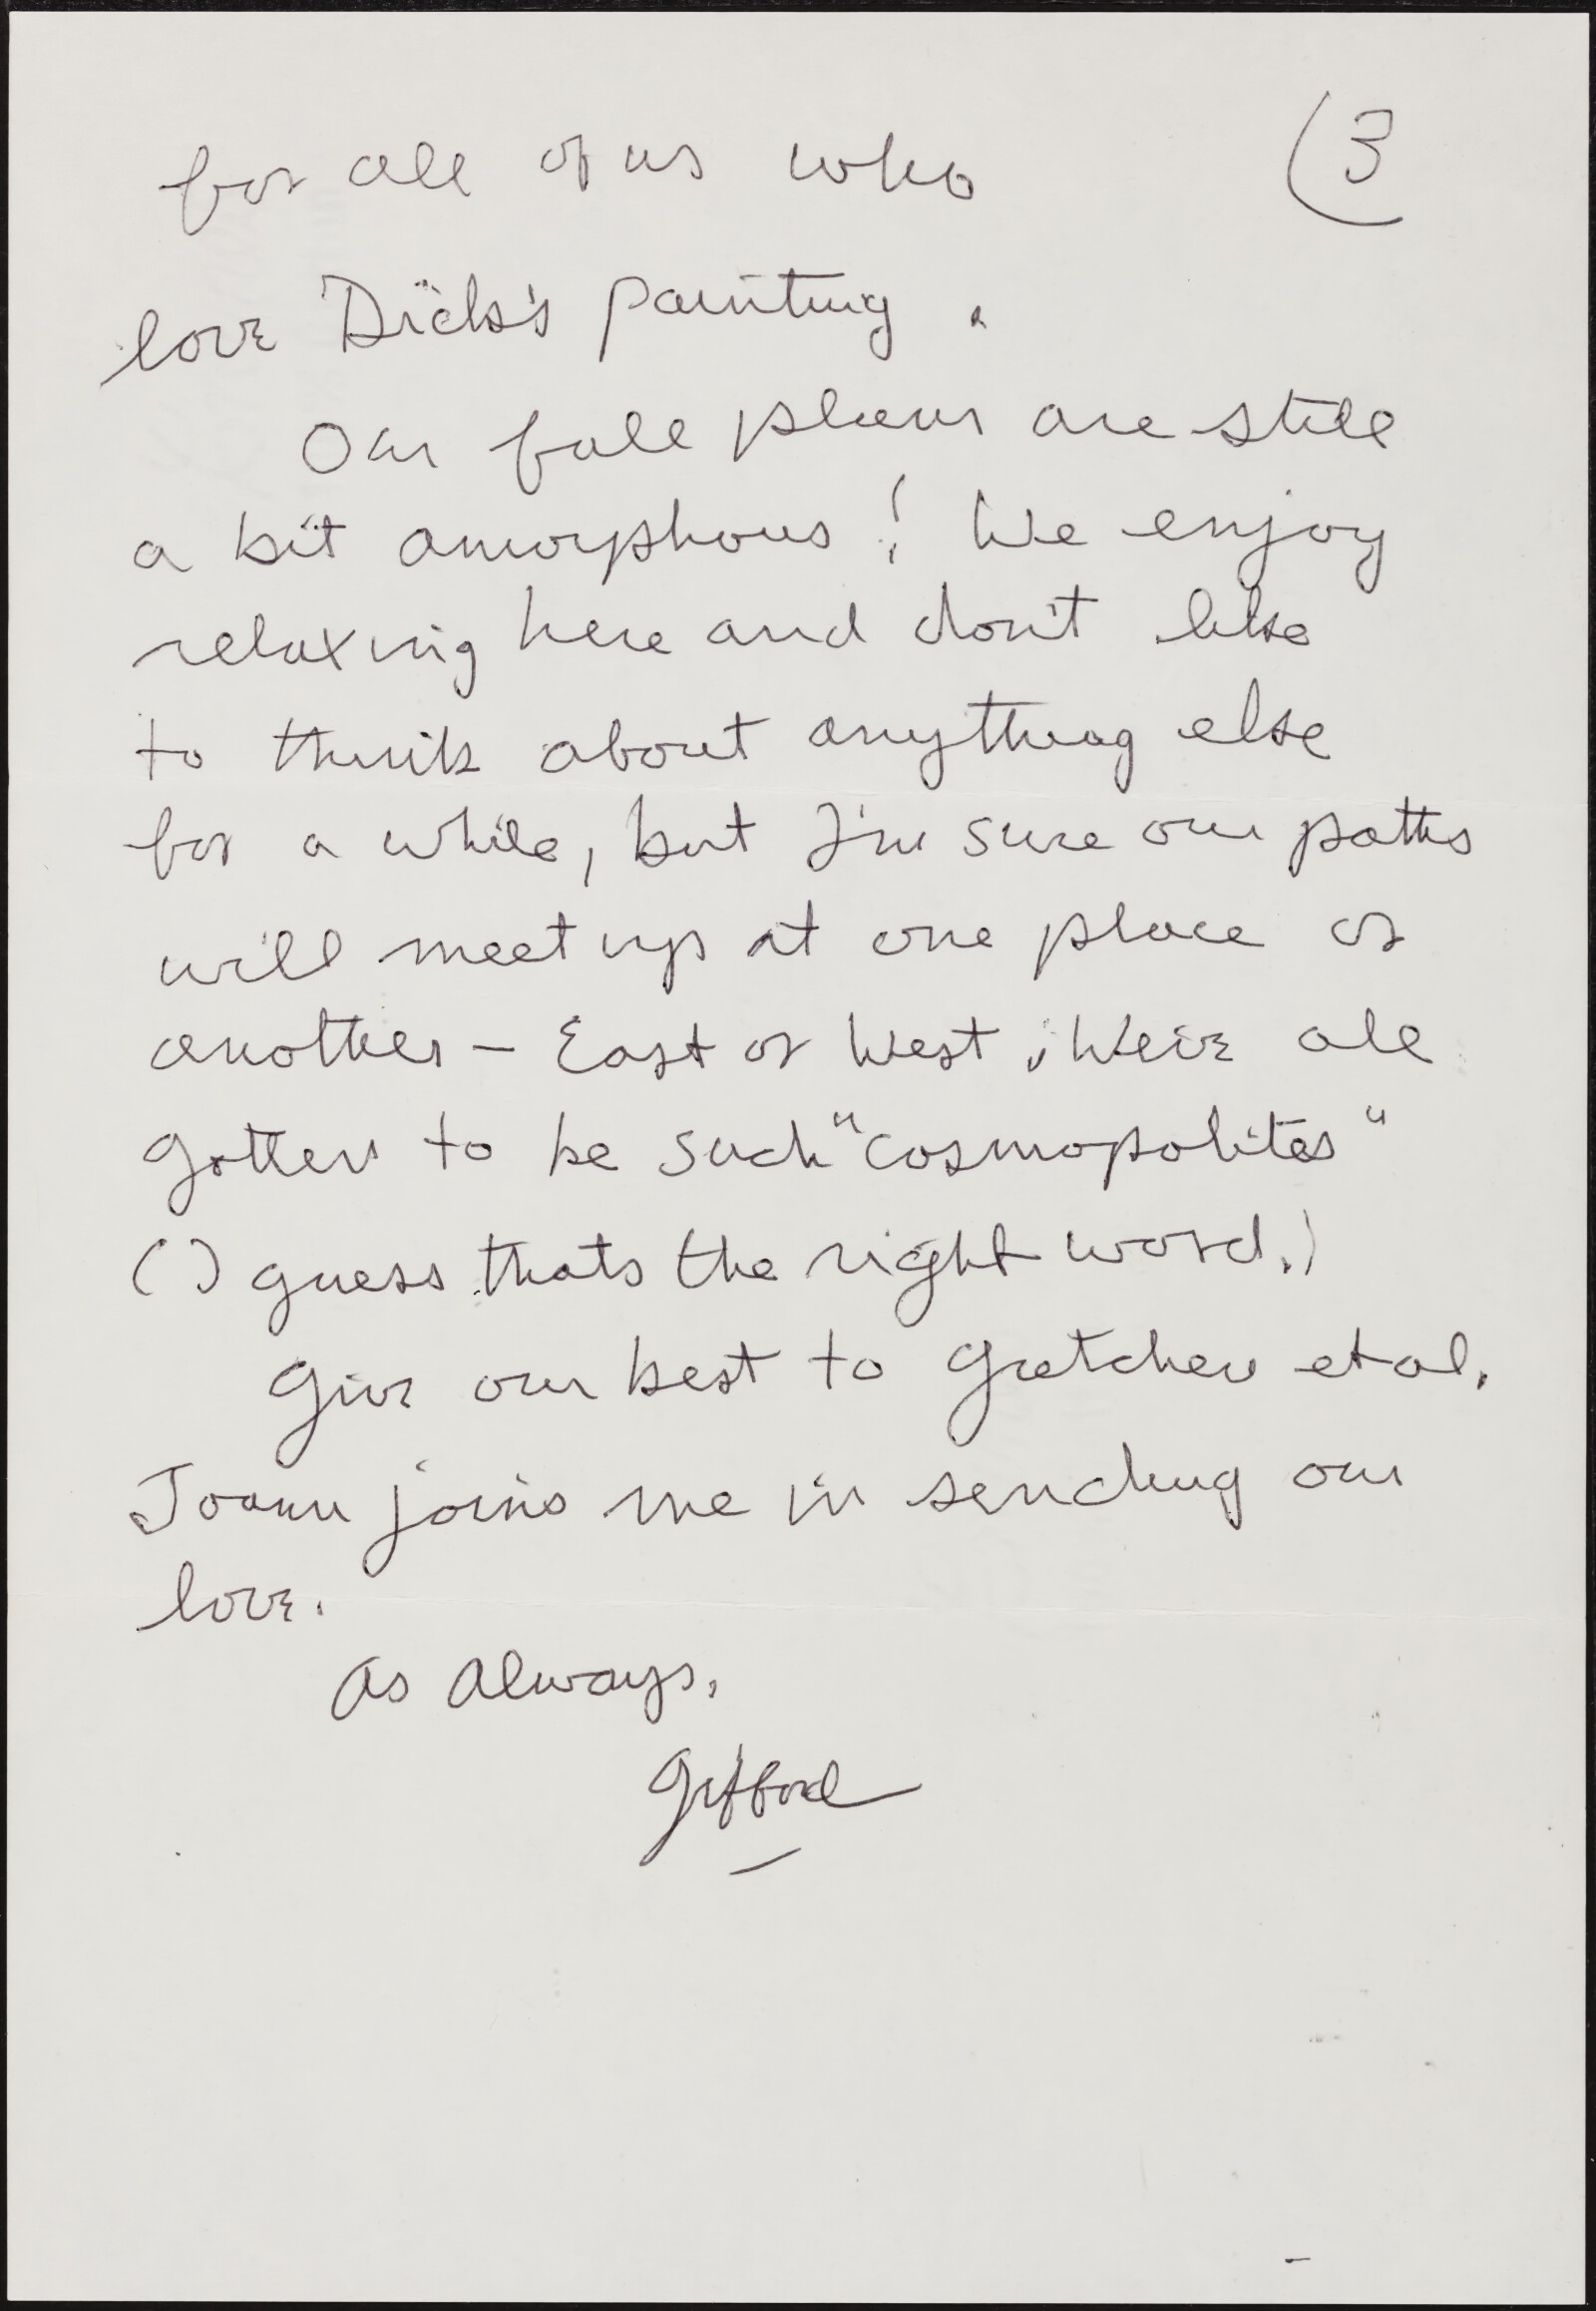 for all of us who (3
love Dick's painting.
Our fall plans are still
a bit amorphous! We enjoy
relaxing here and don't like
to think about anything else
for a while, but I'm sure our paths
will meet up at one place or
another - East or West. We've all
gotten to be such "cosmopolites"
(I guess thats the right word.)
Give our best to Gretchen et al.
Joann joins me in sending our
love.
As Always,
Gifford